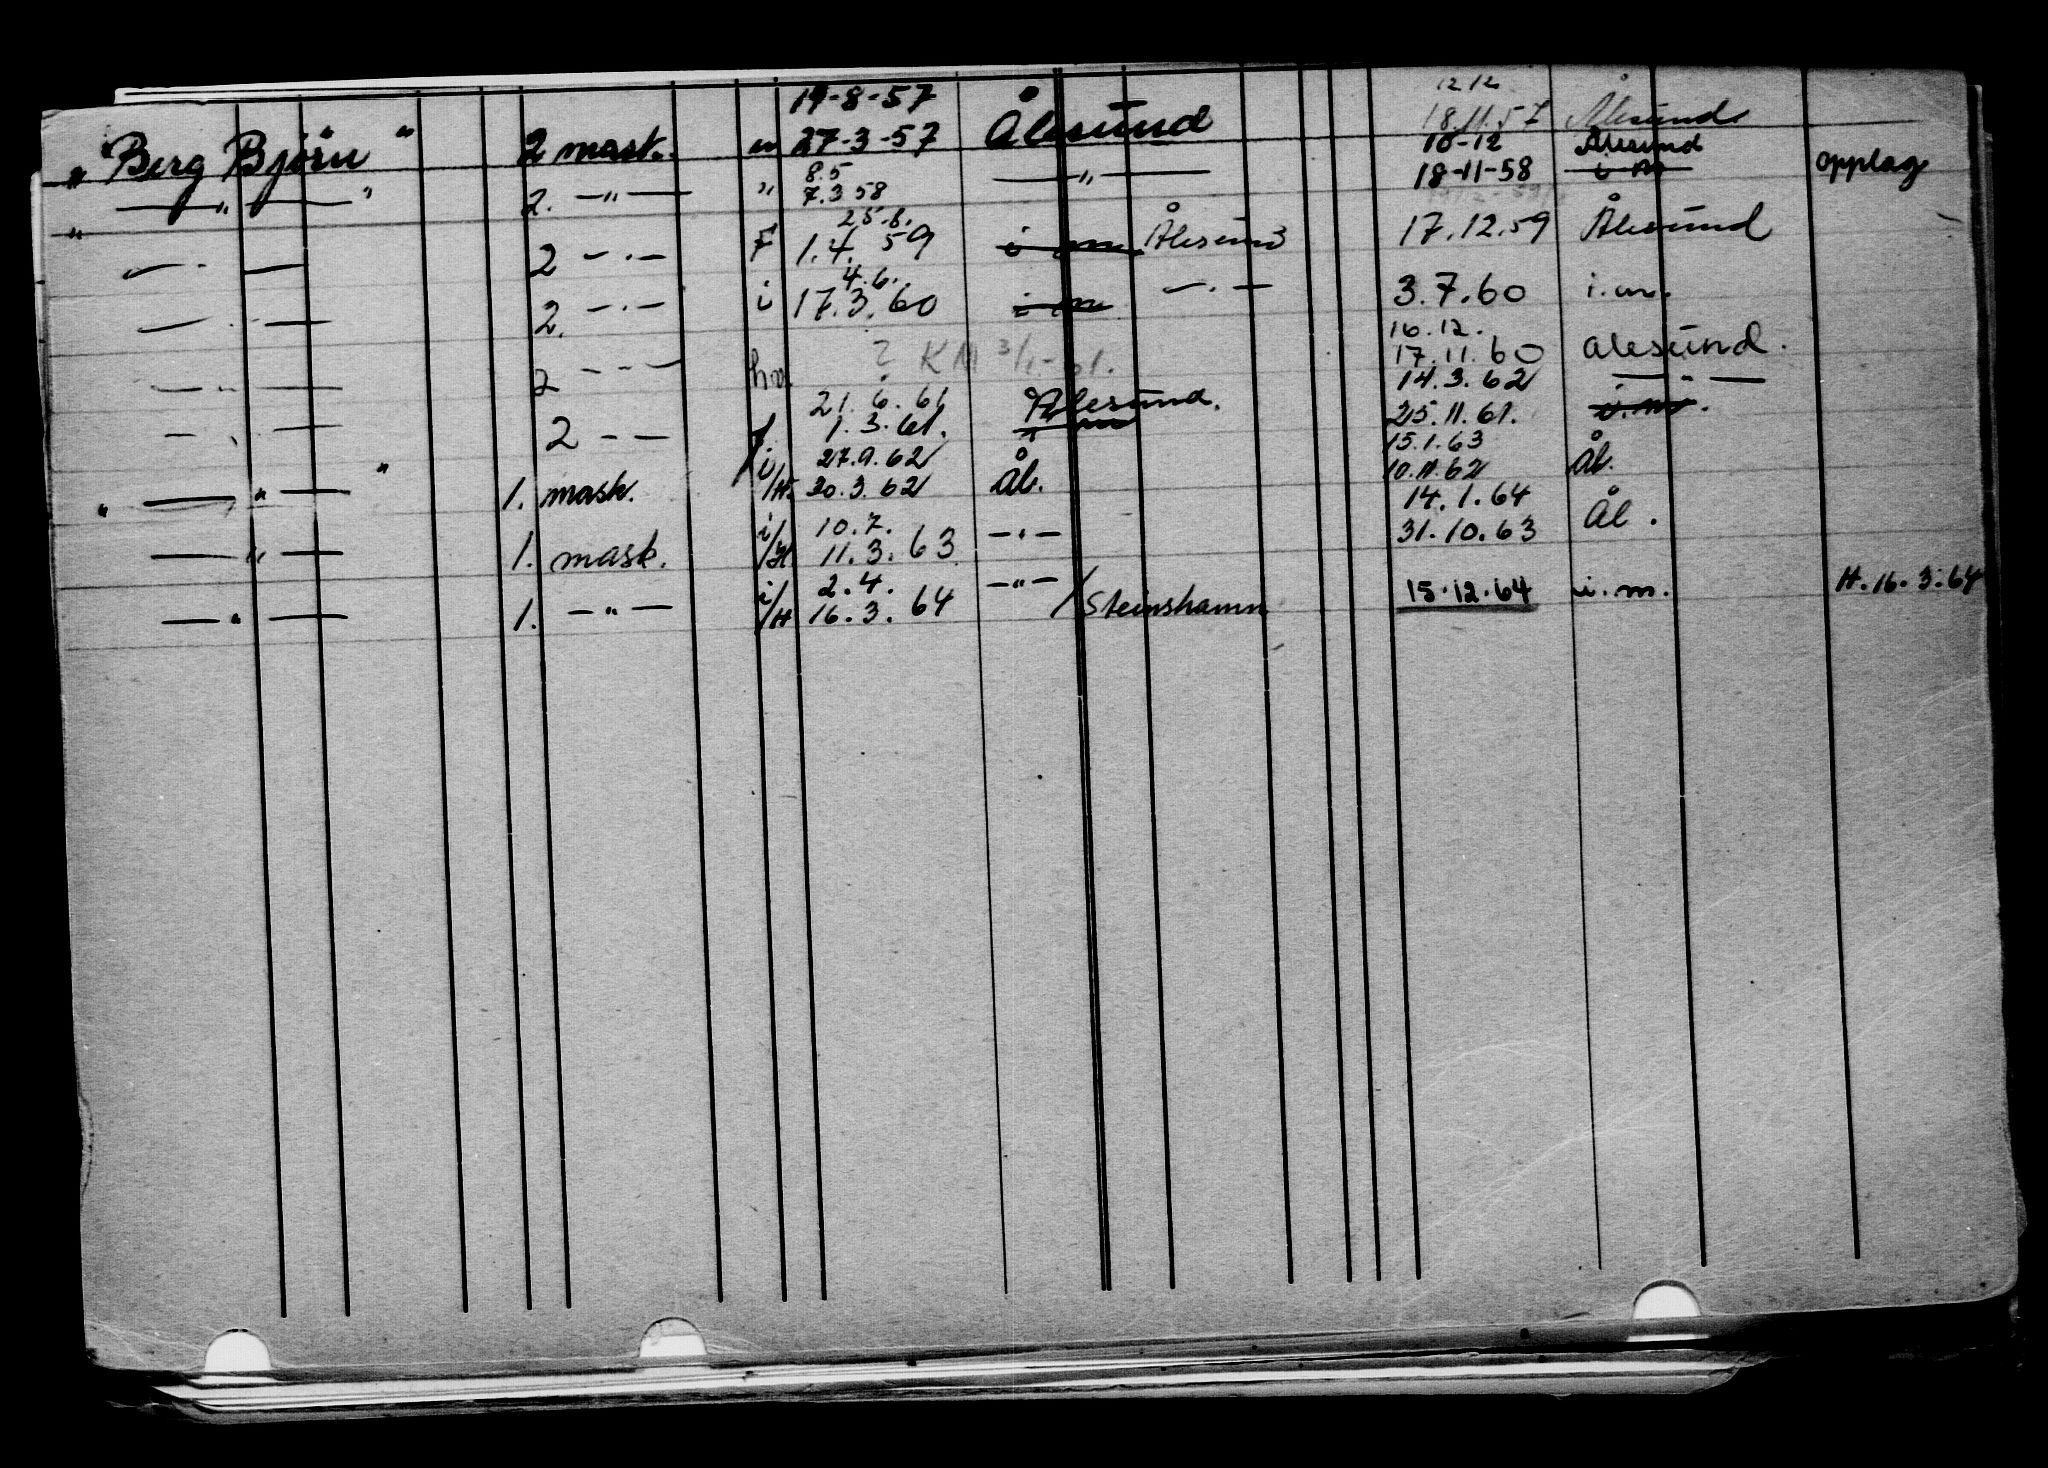 19-8-57 12 12
18.11.57 Ålesund
"Berg Björn" 2 mask. m 27-3-57 Ålesund 10-12 Ålesund
8.5 18-11-58 i m opplag
" —"— " 2. —"— " 7.3 58 —"—
25.6.
— — 2 —.— F 1.4. 59 i m Ålesund 17.12.59 Ålesund
4.6.
— — 2. —.— i 17.3.60 i m —.— 3.7.60 i.m.
16.12.
— — 2 — - — ? KM 3/1-61. 17.11.60 Ålesund.
21.6.61 Ålesund. 14.3.62 — " —
— — 2 — — 1.3.61. 25.11.61. i.m.
27.9.62 15.1.63
" —"— " 1. mask. i/H. 20.3.62 Ål. 10.11.62 Ål.
10.7. 14.1.64
—"— 1. mask. i/H 11.3.63 —.— 31.10.63 Ål.
2.4.
—"— 1. —"— i/H 16.3.64 —"— /Steinshamn 15.12.64 i.m. H.16.3.64